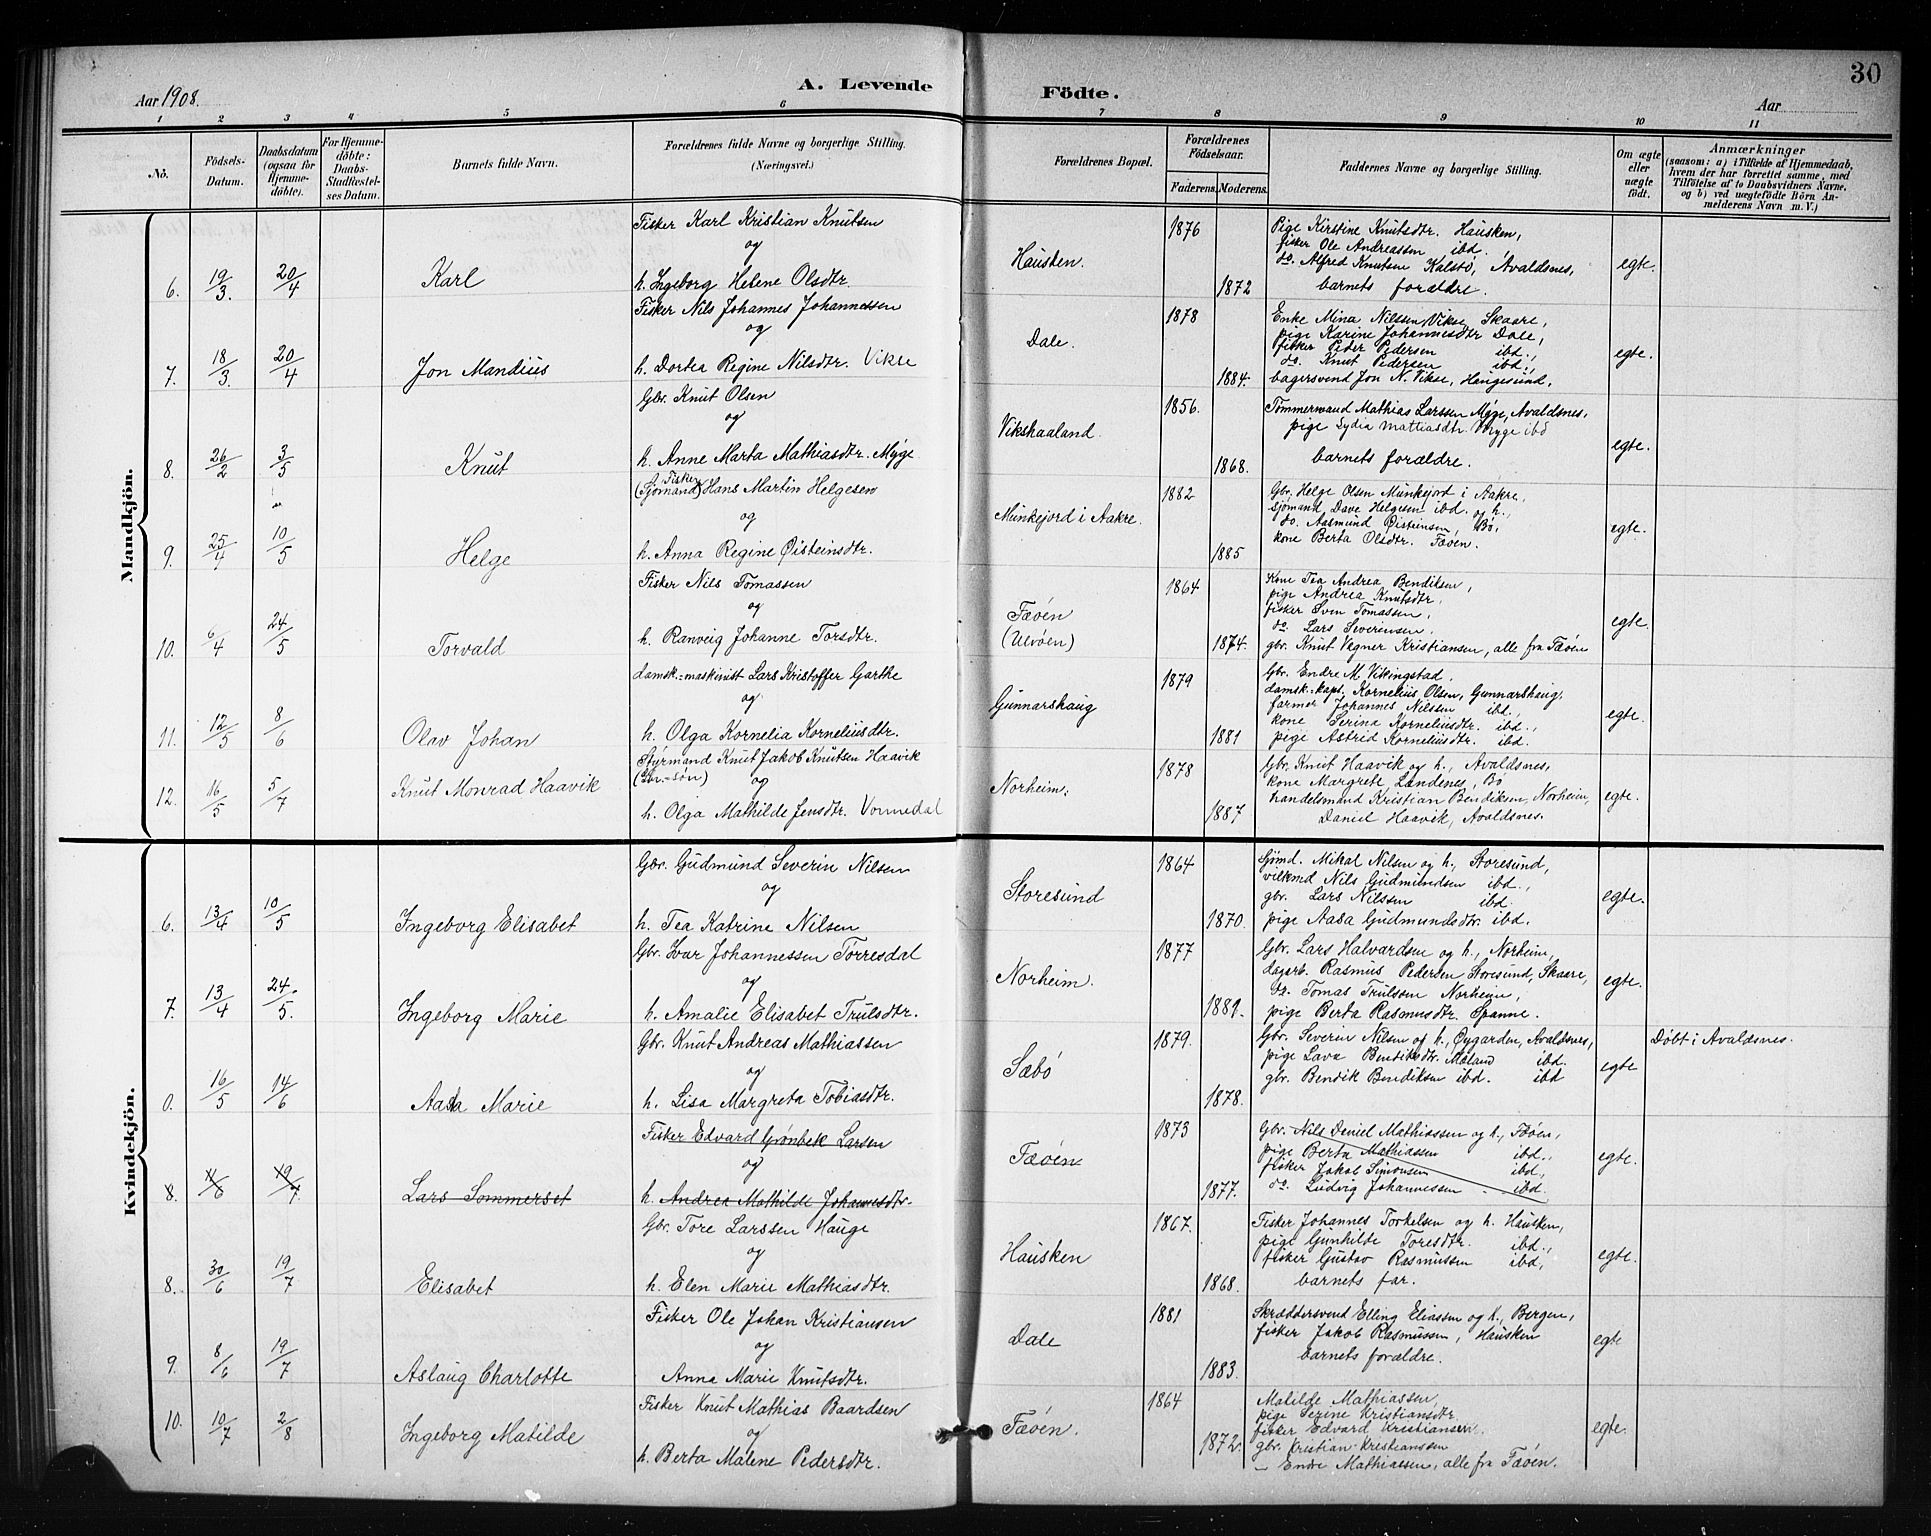 30
Aar 1908.
A. Levende Födte.
Aar
1 2 3 4 5 6 7 8 9 10 11
No.
Födsels-Datum.
Daabsdatum (ogsaa for Hjemmedöbte).
For Hjemmedöbte: Daabs-Stadfæstelses Datum.
Barnets fulde Navn.
Forældrenes fulde Navne og borgerlige Stilling. (Næringsvei.)
Forældrenes Bopæl.
Forældrenes Födselsaar.
Faderens. Moderens.
Faddernes Navne og borgerlige Stilling.
Om ægte eller uægte födt.
Anmærkninger
(saasom: a) i Tilfælde af Hjemmedaab, hvem der har forrettet samme, med Tilföielse af to Daabsvidners Navne, og b) ved uægtefödte Börn Anmelderens Navn m. V.)
Mandkjön.
6. 19/3. 20/4 Karl
Fisker Karl Kristian Knutsen
og
h. Ingeborg Helene Olsdtr.
Hausken.
1876
1872
Pige Kirstine Knutsdtr. Hausken,
fisker Ole Andreassen ibd.
do. Alfred Knutsen Kalstø, Avaldsnes,
barnets forældre.
egte.
7. 18/3. 20/4 Jon Mandius
Fisker Nils Johannes Johannessen
og
h. Dortea Regine Nilsdtr. Vikse
Dale.
1878
1884.
Enke Mina Nilssen Vikse, Skaare,
pige Karine Johannesdtr Dale,
fisker Peder Pedersen ibd.,
do. Knut Pedersen ibd.,
bagersvend Jon N. Vikse, Haugesund.
egte.
8. 26/2 3/5 Knut
Gbr. Knut Olsen
og
h. Anne Marta Mathiasdtr. Myge
Vikshaaland.
1856.
1868.
Tømmermand Mathias Larssen Myge, Avaldsnes,
pige Lydia Mattiasdtr. Myge ibd
barnets forældre.
egte.
9. 25/4 10/5 Helge
Fisker
(Sjømand) Hans Martin Helgesen
og
h. Anna Regine Øisteinsdtr.
Munkejord i Aakre.
1882
1885
Gbr. Helge Olsen Munkejord i Aakre,
sjømand Dave Helgesen ibd. og h.,
do. Aasmund Øisteinsen, Bø,
kone Berta Olsdtr. Fæøen.
egte.
10. 6/4 24/5 Torvald
Fisker Nils Tomassen
og
h. Ranveig Johanne Torsdtr.
Fæøen
(Ulvøen)
1864
1874.
Kone Tea Andrea Bendiksen,
pige Andrea Knutsdtr.
fisker Sven Tomassen,
do. Lars Severinsen,
gbr. Knut Vegner Kristiansen, alle fra Fæøen
egte.
11. 12/5 8/6 Olav Johan
damsk.-maskinist Lars Kristoffer Garthe
og
h. Olga Kornelia Korneliusdtr.
Gunnarshaug
1879
1881
Gbr. Endre M. Vikingstad.
damsk.-kapt. Kornelius Olsen, Gunnarshaug,
farmer Johannes Nilsen ibd.,
kone Serina Korneliusdtr. ibd.,
pige Astrid Korneliusdtr. ibd.
egte.
12. 16/5 5/7 Knut Monrad Haavik
Styrmand Knut Jakob Knutsen Haavik
(Gbr.-søn) og
h. Olga Mathilde Jensdtr. Vormedal
Norheim.
1878
1887
Gbr. Knut Haavik og h., Avaldsnes,
kone Margrete Landenes, Bø
handelsmand Kristian Bendiksen, Norheim,
Daniel Haavik, Avaldsnes.
egte.
Kvindekjön.
6. 13/4 10/5 Ingeborg Elisabet
Gbr. Gudmund Severin Nilsen
og
h. Tea Katrine Nilsen
Storesund
1864
1870.
Sjømd. Mikal Nilsen og h., Storesund,
Nils Gudmundsen ibd.,
gbr. Lars Nilssen ibd.
pige Aasa Gudmundsdtr. ibd.
egte.
7. 13/4 24/5. Ingeborg Marie
Gbr. Ivar Johannessen Torresdal
og
h. Amalie Elisabet Trulsdtr.
Norheim.
1877
1881.
Gbr. Lars Halvardsen og h., Norheim,
dagarb. Rasmus Pedersen Storesund, Skaare,
do. Tomas Trulssen Norheim,
pige Berta Rasmusdtr. Spanne.
egte.
0. 16/5 14/6 Aasa Marie
Gbr. Knut Andreas Mathiassen
og
h. Lisa Margreta Tobiasdtr.
Sæbø
1879.
1878.
Gbr. Severin Nilsen og h., Øygarden, Avaldsnes,
pige Lava Bendiksdtr. Maland ibd.
gbr. Bendik Bendiksen ibd. ibd
egte
Døbt i Avaldsnes.
8. 19/7 Lars Sommerset
Fisker Edvard Grønbek Larsen
og
h. Andrea Mathilde Johannesdtr.
Fæøen
1873
1877.
Gbr. Nils Daniel Mathiassen og h., Fæøen,
pige Berta Mathiassen ibd.,
fisker Jakob Simonsen ibd,
do. Ludvig Johannessen - ibd.
egte.
8. 30/6 19/7 Elisabet
Gbr. Tore Larssen Hauge
og
h. Elen Marie Mathiasdtr.
Hausken
1867.
1868.
Fisker Johannes Torkelsen og h. Hausken,
pige Gunhilde Toresdtr. ibd.,
fisker Gustav Rasmussen ibd,
barnets far.
egte.
9. 8/6 19/7 Aslaug Charlotte
Fisker Ole Johan Kristiansen
og
Anna Marie Knutsdtr.
Dale
1881
1883.
Skræddersvend Elling Eliassen og h., Bergen,
fisker Jakob Rasmussen, Hausken
barnets forældre.
egte
10. 10/7 2/8 Ingeborg Matilde
Fisker Knut Mathias Baardsen
og
h. Berta Malene Pedersdtr.
Fæøen.
1864
1872.
Matilde Mathiassen,
pige Serine Kristiansdtr.
fisker Edvard Kristiansen.
gbr. Kristian Kristianssen
– Endre Mathiassen, alle fra Fæøen.
egte.